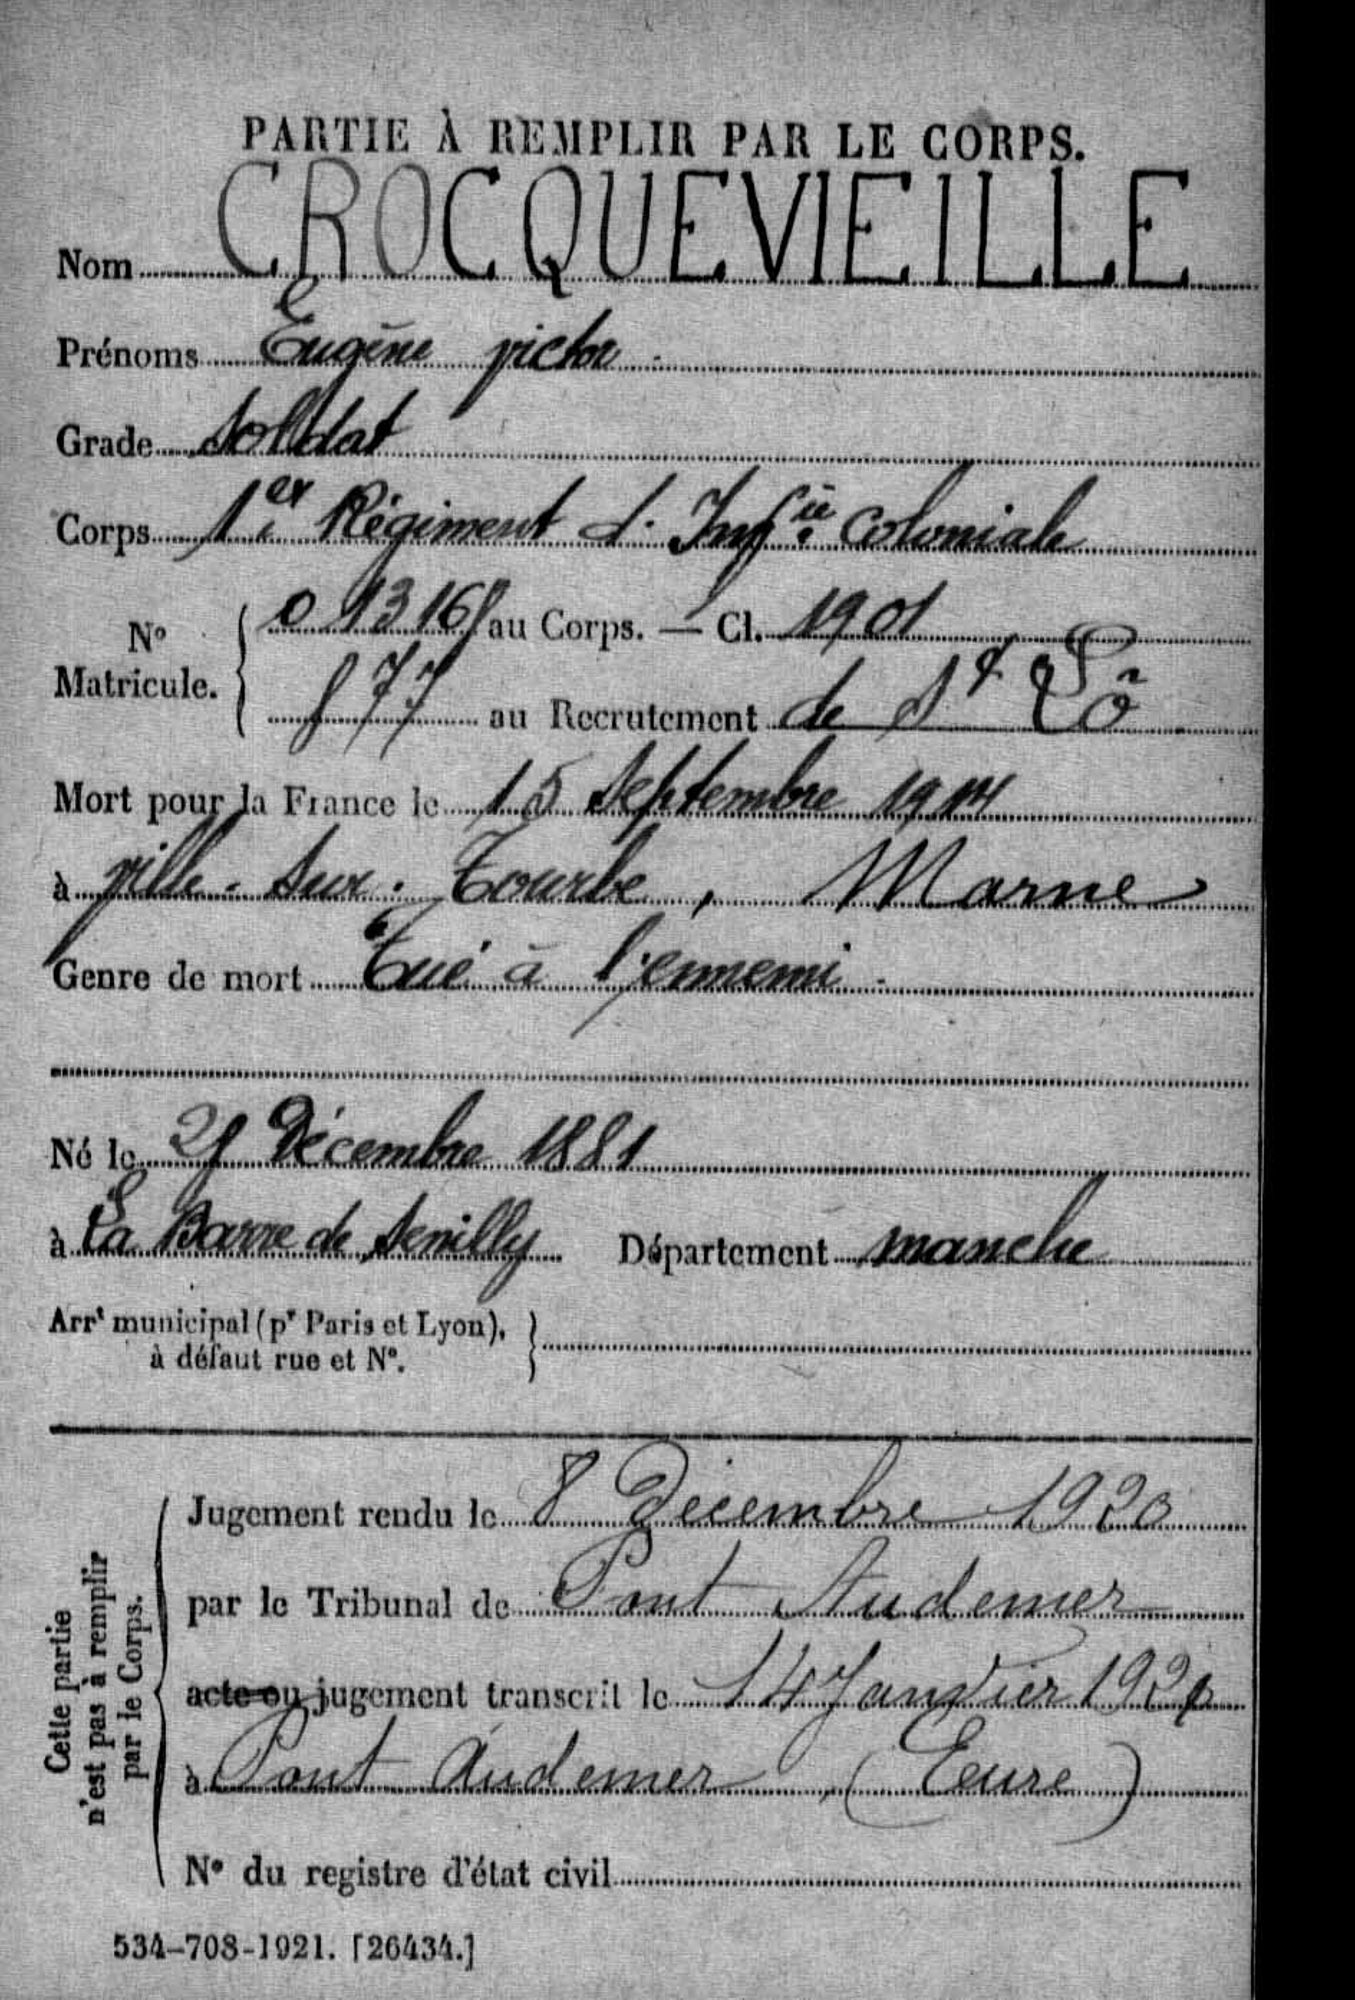 PARTIE À REMPLIR PAR LE CORPS.
Nom CROCQUEVIEILLE
Prénoms Eugène victor
Grade Soldat
Corps 1er Régiment d. Infie Coloniale
No Matricule. { 0 1316 au Corps. — Cl. 1901
877 au Recrutement de St Lô
Mort pour la France le 15 Septembre 1914
à ville-sur-Tourbe, Marne
Genre de mort Tué à l'ennemi
Né le Décembre 1881
à La Barre de Semilly Département manche
Arrt municipal (pr Paris et Lyon), }
à défaut rue et No.
Cette partie
n'est pas à remplir
par le Corps.
Jugement rendu le 8 Décembre 1920
par le Tribunal de Pont Audemer
acte ou jugement transcrit le 14 Janvier
à Pont Audemer (Eure)
No du registre d'état civil
534-708-1921. [26434.]